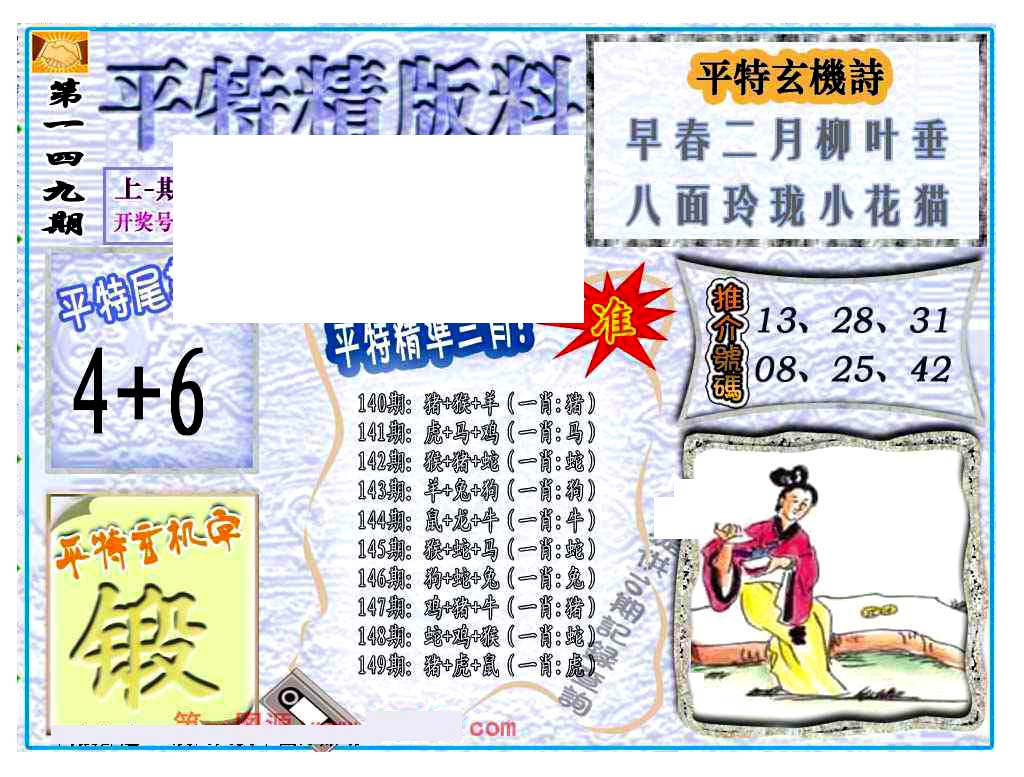 第一四九期
平特精版料
上-期
开奖号
平特玄機詩
早春二月柳叶垂
八面玲珑小花猫
平特尾
4+6
平特精準三肖!
准
推介號碼
13、28、31
08、25、42
140期: 猪+猴+羊（一肖:猪）
141期: 虎+马+鸡（一肖:马）
142期: 猴+猪+蛇（一肖:蛇）
143期: 羊+兔+狗（一肖:狗）
144期: 鼠+龙+牛（一肖:牛）
145期: 猴+蛇+马（一肖:蛇）
146期: 狗+蛇+兔（一肖:兔）
147期: 鸡+猪+牛（一肖:猪）
148期: 蛇+鸡+猴（一肖:蛇）
149期: 猪+虎+鼠（一肖:虎）
平特玄机字
锻
期記錄查詢
com